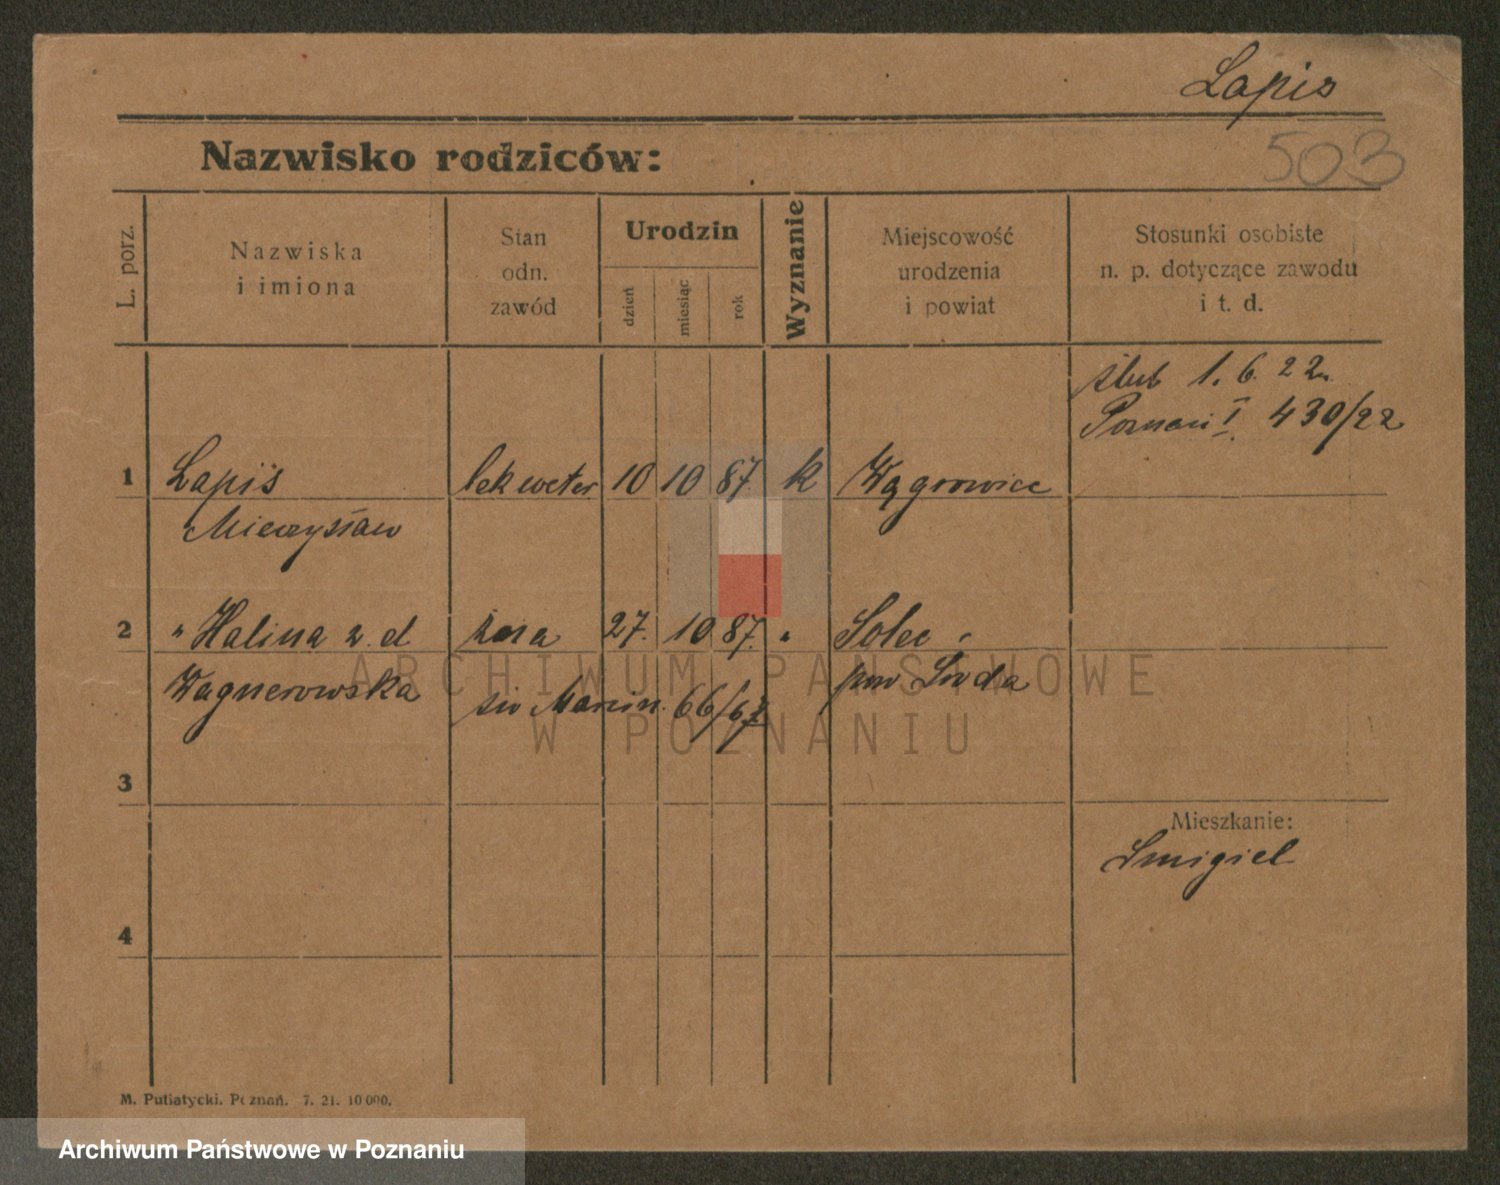 Lapis
Nazwisko rodziców:
503
L. porz.
Nazwiska
i imiona
Stan
odn.
zawód
Urodzin
dzień
miesiąc
rok
Wyznanie
Miejscowość
urodzenia
i powiat
Stosunki osobiste
n. p. dotyczące zawodu
i t. d.
ślub 1. 6. 22.
Poznań I. 430/22
1 Lapis lek weter 10 10 87. k Wągrowiec
Mieczysław
2 " Halina z. d żona 27. 10 87. " Solec
Wagnerowska pow Środa
66/67
3
Mieszkanie:
Śmigiel
4
M. Putiatycki. Poznań. 7. 21. 10 000.
ARCHIWUM PAŃSTWOWE
W POZNANIU
Archiwum Państwowe w Poznaniu